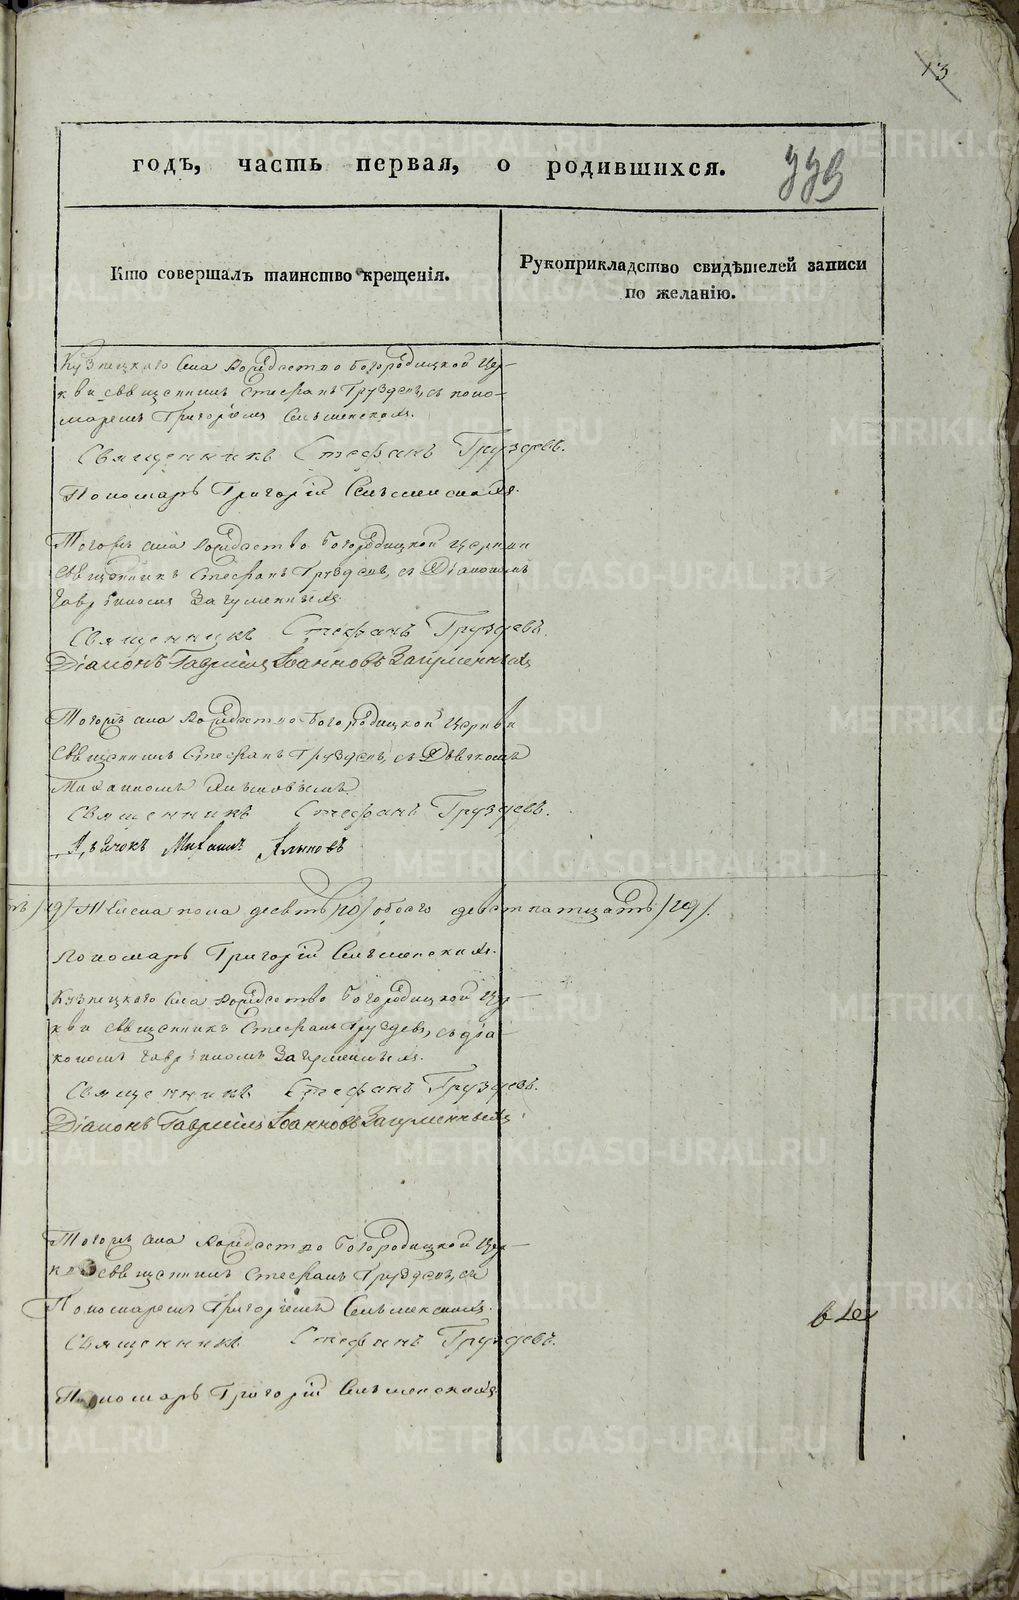 13
годъ, часть первая, о родившихся.
339
Кто совершалъ таинство крещенія.
Рукоприкладство свидѣтелей записи
по желанію.
Кузнецкаго села Рождество Богородицкой Цер-
кви священникъ Стефанъ Груздевъ, съ поно-
маремъ Григоріемъ
Священникъ Стефанъ Груздевъ.
Пономарь Григорій
Тогожъ села Рождество Богородицкой Церкви
священникъ Стефанъ Груздевъ, съ Діакономъ
Гавріиломъ Загуменныхъ.
Священникъ Стефанъ Груздевъ.
Діаконъ Гавріилъ Іоанновъ Загуменныхъ
Тогожъ села Рождество Богородицкой Церкви
священникъ Стефанъ Груздевъ, съ Дьячкомъ
Михаиломъ
Священникъ Стефанъ Груздевъ.
Дьячокъ Михаилъ
/19/ Женска пола десять /10/ обоего девятнатцать /19/.
Пономарь Григорій
Кузнецкаго села Рождество Богородицкой Цер-
кви священникъ Стефанъ Груздевъ, съ діа-
кономъ Гавріиломъ Загуменныхъ.
Священникъ Стефанъ Груздевъ.
Діаконъ Гавріилъ Іоанновъ Загуменныхъ
Тогожъ села Рождество Богородицкой Цер-
кви священникъ Стефанъ Груздевъ, съ
Пономаремъ Григоріемъ
Священникъ Стефанъ Груздевъ.
Пономарь Григорій
METRIKI.GASO-URAL.RU